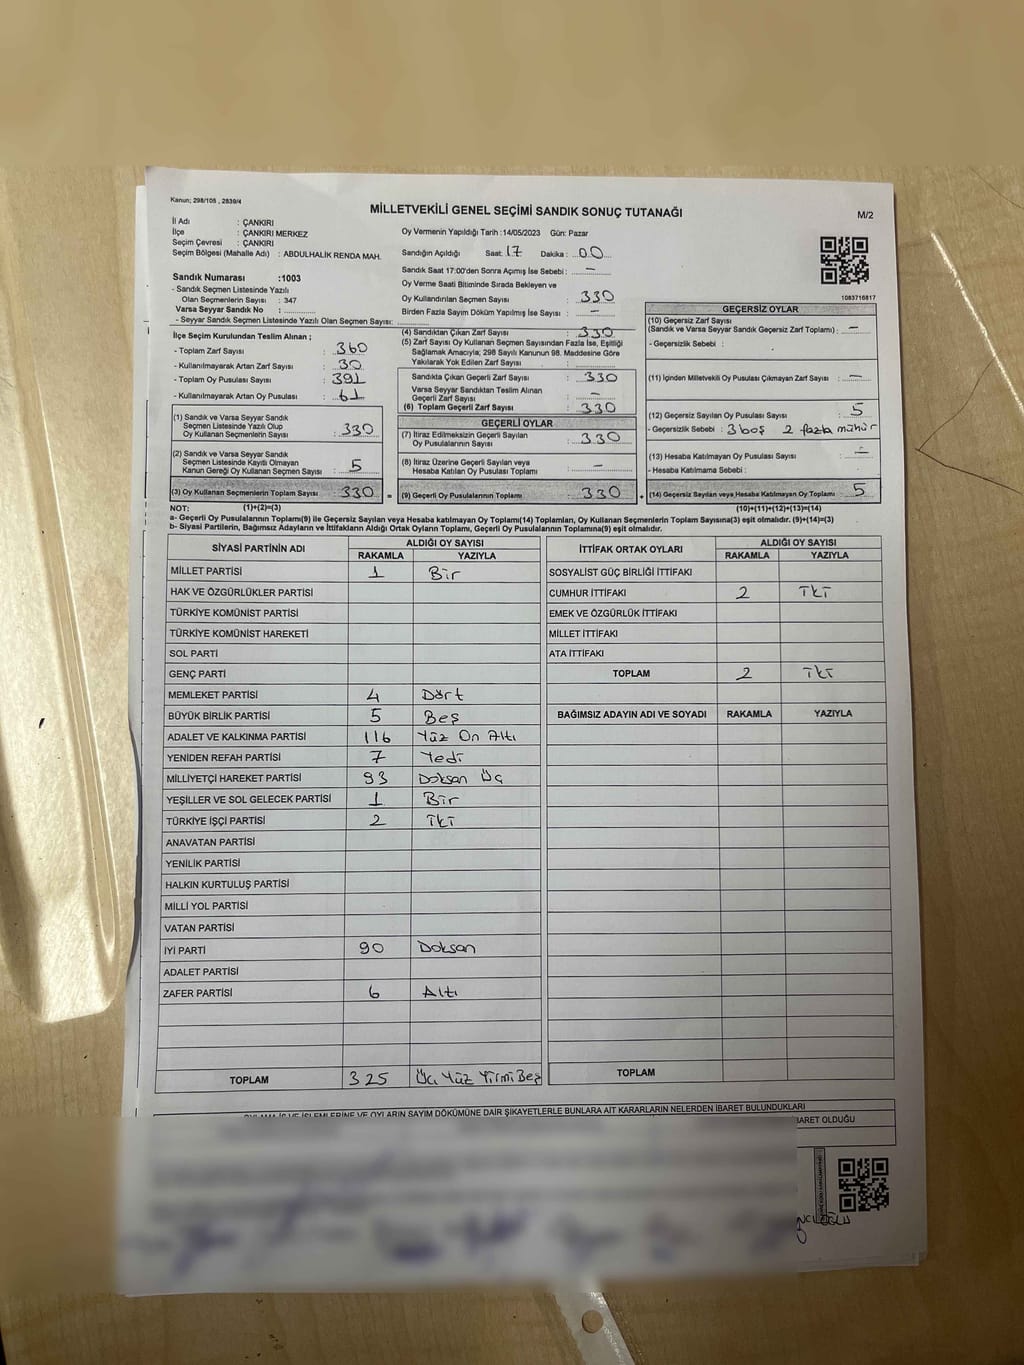 Kanun; 298/105 , 2839/4
MİLLETVEKİLİ GENEL SEÇİMİ SANDIK SONUÇ TUTANAĞI
M/2
İl Adı : ÇANKIRI
İlçe : ÇANKIRI MERKEZ
Seçim Çevresi : ÇANKIRI
Seçim Bölgesi (Mahalle Adı) : ABDULHALİK RENDA MAH.
Sandık Numarası :1003
- Sandık Seçmen Listesinde Yazılı
Olan Seçmenlerin Sayısı : 347
Varsa Seyyar Sandık No :
- Seyyar Sandık Seçmen Listesinde Yazılı Olan Seçmen Sayısı:
Oy Vermenin Yapıldığı Tarih :14/05/2023 Gün: Pazar
Sandığın Açıldığı Saat: 17 Dakika : 00
Sandık Saat 17:00'den Sonra Açımış İse Sebebi : —
Oy Verme Saati Bitiminde Sırada Bekleyen ve
Oy Kullandırılan Seçmen Sayısı : 330
Birden Fazla Sayım Döküm Yapılmış İse Sayısı : —
1083716817
İlçe Seçim Kurulundan Teslim Alınan ;
- Toplam Zarf Sayısı : 360
- Kullanılmayarak Artan Zarf Sayısı : 30
- Toplam Oy Pusulası Sayısı : 391
- Kullanılmayarak Artan Oy Pusulası : 61
(1) Sandık ve Varsa Seyyar Sandık
Seçmen Listesinde Yazılı Olup
Oy Kullanan Seçmenlerin Sayısı : 330
(2) Sandık ve Varsa Seyyar Sandık
Seçmen Listesinde Kayıtlı Olmayan
Kanun Gereği Oy Kullanan Seçmen Sayısı : 5
(3) Oy Kullanan Seçmenlerin Toplam Sayısı : 330 =
(4) Sandıktan Çıkan Zarf Sayısı : 330
(5) Zarf Sayısı Oy Kullanan Seçmen Sayısından Fazla İse, Eşitliği
Sağlamak Amacıyla; 298 Sayılı Kanunun 98. Maddesine Göre
Yakılarak Yok Edilen Zarf Sayısı :
Sandıkta Çıkan Geçerli Zarf Sayısı : 330
Varsa Seyyar Sandıktan Teslim Alınan
Geçerli Zarf Sayısı : —
(6) Toplam Geçerli Zarf Sayısı : 330
GEÇERLİ OYLAR
(7) İtiraz Edilmeksizin Geçerli Sayılan
Oy Pusulalarının Sayısı : 330
(8) İtiraz Üzerine Geçerli Sayılan veya
Hesaba Katılan Oy Pusulası Toplamı : —
(9) Geçerli Oy Pusulalarının Toplamı : 330 +
GEÇERSİZ OYLAR
(10) Geçersiz Zarf Sayısı
(Sandık ve Varsa Seyyar Sandık Geçersiz Zarf Toplamı) : —
- Geçersizlik Sebebi :
(11) İçinden Milletvekili Oy Pusulası Çıkmayan Zarf Sayısı : —
(12) Geçersiz Sayılan Oy Pusulası Sayısı : 5
- Geçersizlik Sebebi : 3 boş 2 fazla mühür
(13) Hesaba Katılmayan Oy Pusulası Sayısı : —
- Hesaba Katılmama Sebebi :
(14) Geçersiz Sayılan veya Hesaba Katılmayan Oy Toplamı : 5
NOT: (1)+(2)=(3) (10)+(11)+(12)+(13)=(14)
a- Geçerli Oy Pusulalarının Toplamı(9) ile Geçersiz Sayılan veya Hesaba katılmayan Oy Toplamı(14) Toplamları, Oy Kullanan Seçmenlerin Toplam Sayısına(3) eşit olmalıdır. (9)+(14)=(3)
b- Siyasi Partilerin, Bağımsız Adayların ve İttifakların Aldığı Ortak Oyların Toplamı, Geçerli Oy Pusulasının Toplamına(9) eşit olmalıdır.
SİYASİ PARTİNİN ADI ALDIĞI OY SAYISI
RAKAMLA YAZIYLA
MİLLET PARTİSİ 1 Bir
HAK VE ÖZGÜRLÜKLER PARTİSİ
TÜRKİYE KOMÜNİST PARTİSİ
TÜRKİYE KOMÜNİST HAREKETİ
SOL PARTİ
GENÇ PARTİ
MEMLEKET PARTİSİ 4 Dört
BÜYÜK BİRLİK PARTİSİ 5 Beş
ADALET VE KALKINMA PARTİSİ 116 Yüz On Altı
YENİDEN REFAH PARTİSİ 7 Yedi
MİLLİYETÇİ HAREKET PARTİSİ 93 Doksan Üç
YEŞİLLER VE SOL GELECEK PARTİSİ 1 Bir
TÜRKİYE İŞÇİ PARTİSİ 2 İki
ANAVATAN PARTİSİ
YENİLİK PARTİSİ
HALKIN KURTULUŞ PARTİSİ
MİLLİ YOL PARTİSİ
VATAN PARTİSİ
İYİ PARTİ 90 Doksan
ADALET PARTİSİ
ZAFER PARTİSİ 6 Altı
TOPLAM 325 Üç Yüz Yirmi Beş
İTTİFAK ORTAK OYLARI ALDIĞI OY SAYISI
RAKAMLA YAZIYLA
SOSYALİST GÜÇ BİRLİĞİ İTTİFAKI
CUMHUR İTTİFAKI 2 İki
EMEK VE ÖZGÜRLÜK İTTİFAKI
MİLLET İTTİFAKI
ATA İTTİFAKI
TOPLAM 2 İki
BAĞIMSIZ ADAYIN ADI VE SOYADI RAKAMLA YAZIYLA
TOPLAM
OYLAMA İŞ VE İŞLEMLERİNE VE OYLARIN SAYIM DÖKÜMÜNE DAİR ŞİKAYETLERLE BUNLARA AİT KARARLARIN NELERDEN İBARET BULUNDUKLARI
İBARET OLDUĞU